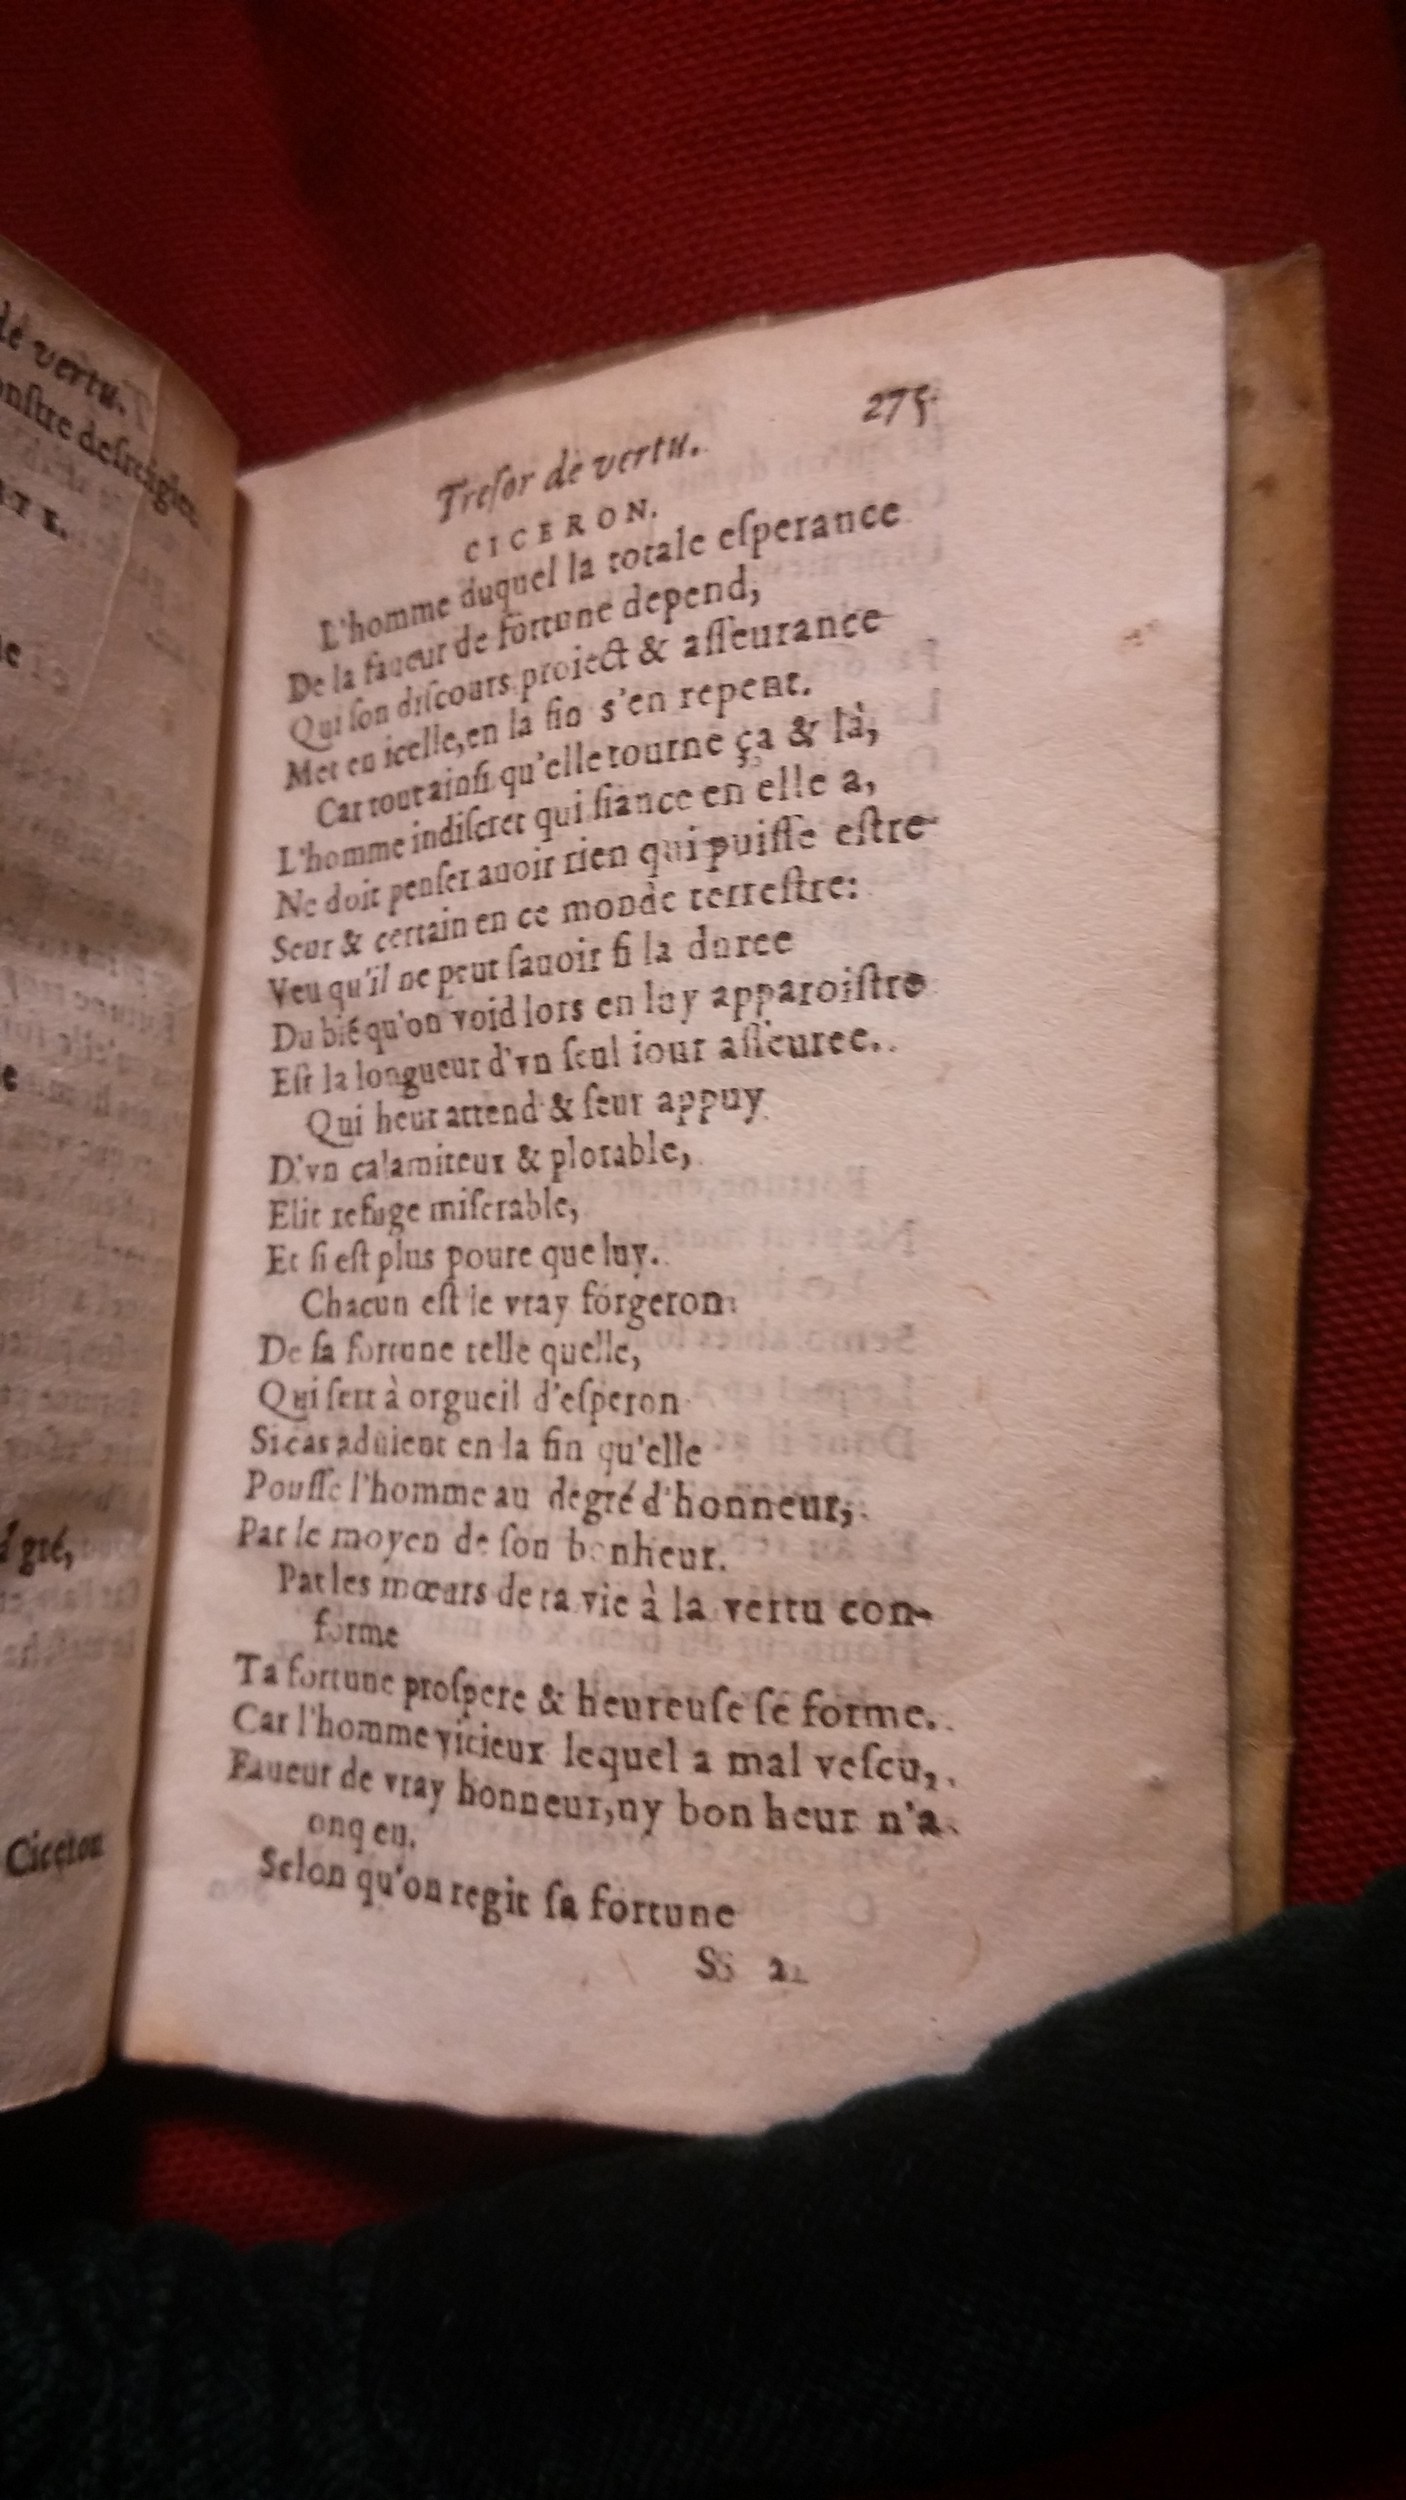 dé vertu.
onſtre deſreiglee
de
de
à gré,
Ciceron
275.
Treſor de vertu.
CICERON.
L'homme duquel la totale eſperance
De la faueur de fortune depend,
Qui ſon diſcours proiect & aſſeurance
Met en icelle, en la fin s'en repent.
Car tout ainſi qu'elle tourne ça & là,
L'homme indiſcret qui fiance en elle a,
Ne doit penſer auoir rien qui puiſſe eſtre
Seur & certain en ce monde terreſtre:
Veu qu'il ne peut ſauoir ſi la duree
Du bié qu'on void lors en luy apparoiſtre
Eſt la longueur d'vn ſeul iour aſſeuree.
Qui heur attend & ſeur appuy
D'vn calamiteux & plorable,
Elit refuge miſerable,
Et ſi eſt plus poure que luy.
Chacun eſt le vray forgeron
De ſa fortune telle quelle,
Qui ſert à orgueil d'eſperon
Si cas aduient en la fin qu'elle
Pouſſe l'homme au degré d'honneur,
Par le moyen de ſon bonheur.
Par les mœurs de ta vie à la vertu con-
forme
Ta fortune proſpere & heureuſe ſe forme.
Car l'homme vicieux lequel a mal veſcu,
Faueur de vray honneur, ny bon heur n'a
onq eu.
Selon qu'on regit ſa fortune
SS 2